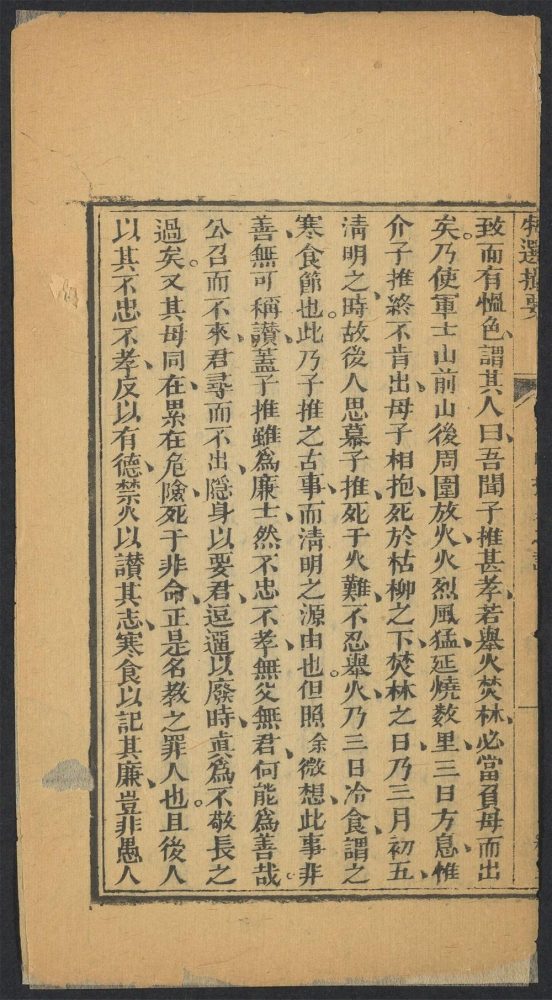 特選撮要
致而有慍色、謂其人曰、吾聞子推甚孝、若舉火焚林、必當負母而出
矣。乃使軍士山前山後周圍放火、火烈風猛、延燒数里、三日方息、惟
介子推終不肯出。母子相抱、死於枯柳之下、焚林之日、乃三月初五、
清明之時、故後人思慕子推、死于火難、不忍舉火、乃三日冷食、謂之
寒食節也。此乃子推之古事、而清明之源由也。但照余微想、此事非
善、無可稱讃、蓋子推雖爲廉士、然不忠不孝、無父無君、何能爲善哉。
公召而不來、君尋而不出、隱身以要君、逗遛以廢時、真爲不敬長之
過矣。又其母同在、累在危險、死于非命、正是名教之罪人也。且後人
以其不忠不孝、反以有德、禁火以讃其志、寒食以記其廉、豈非愚人